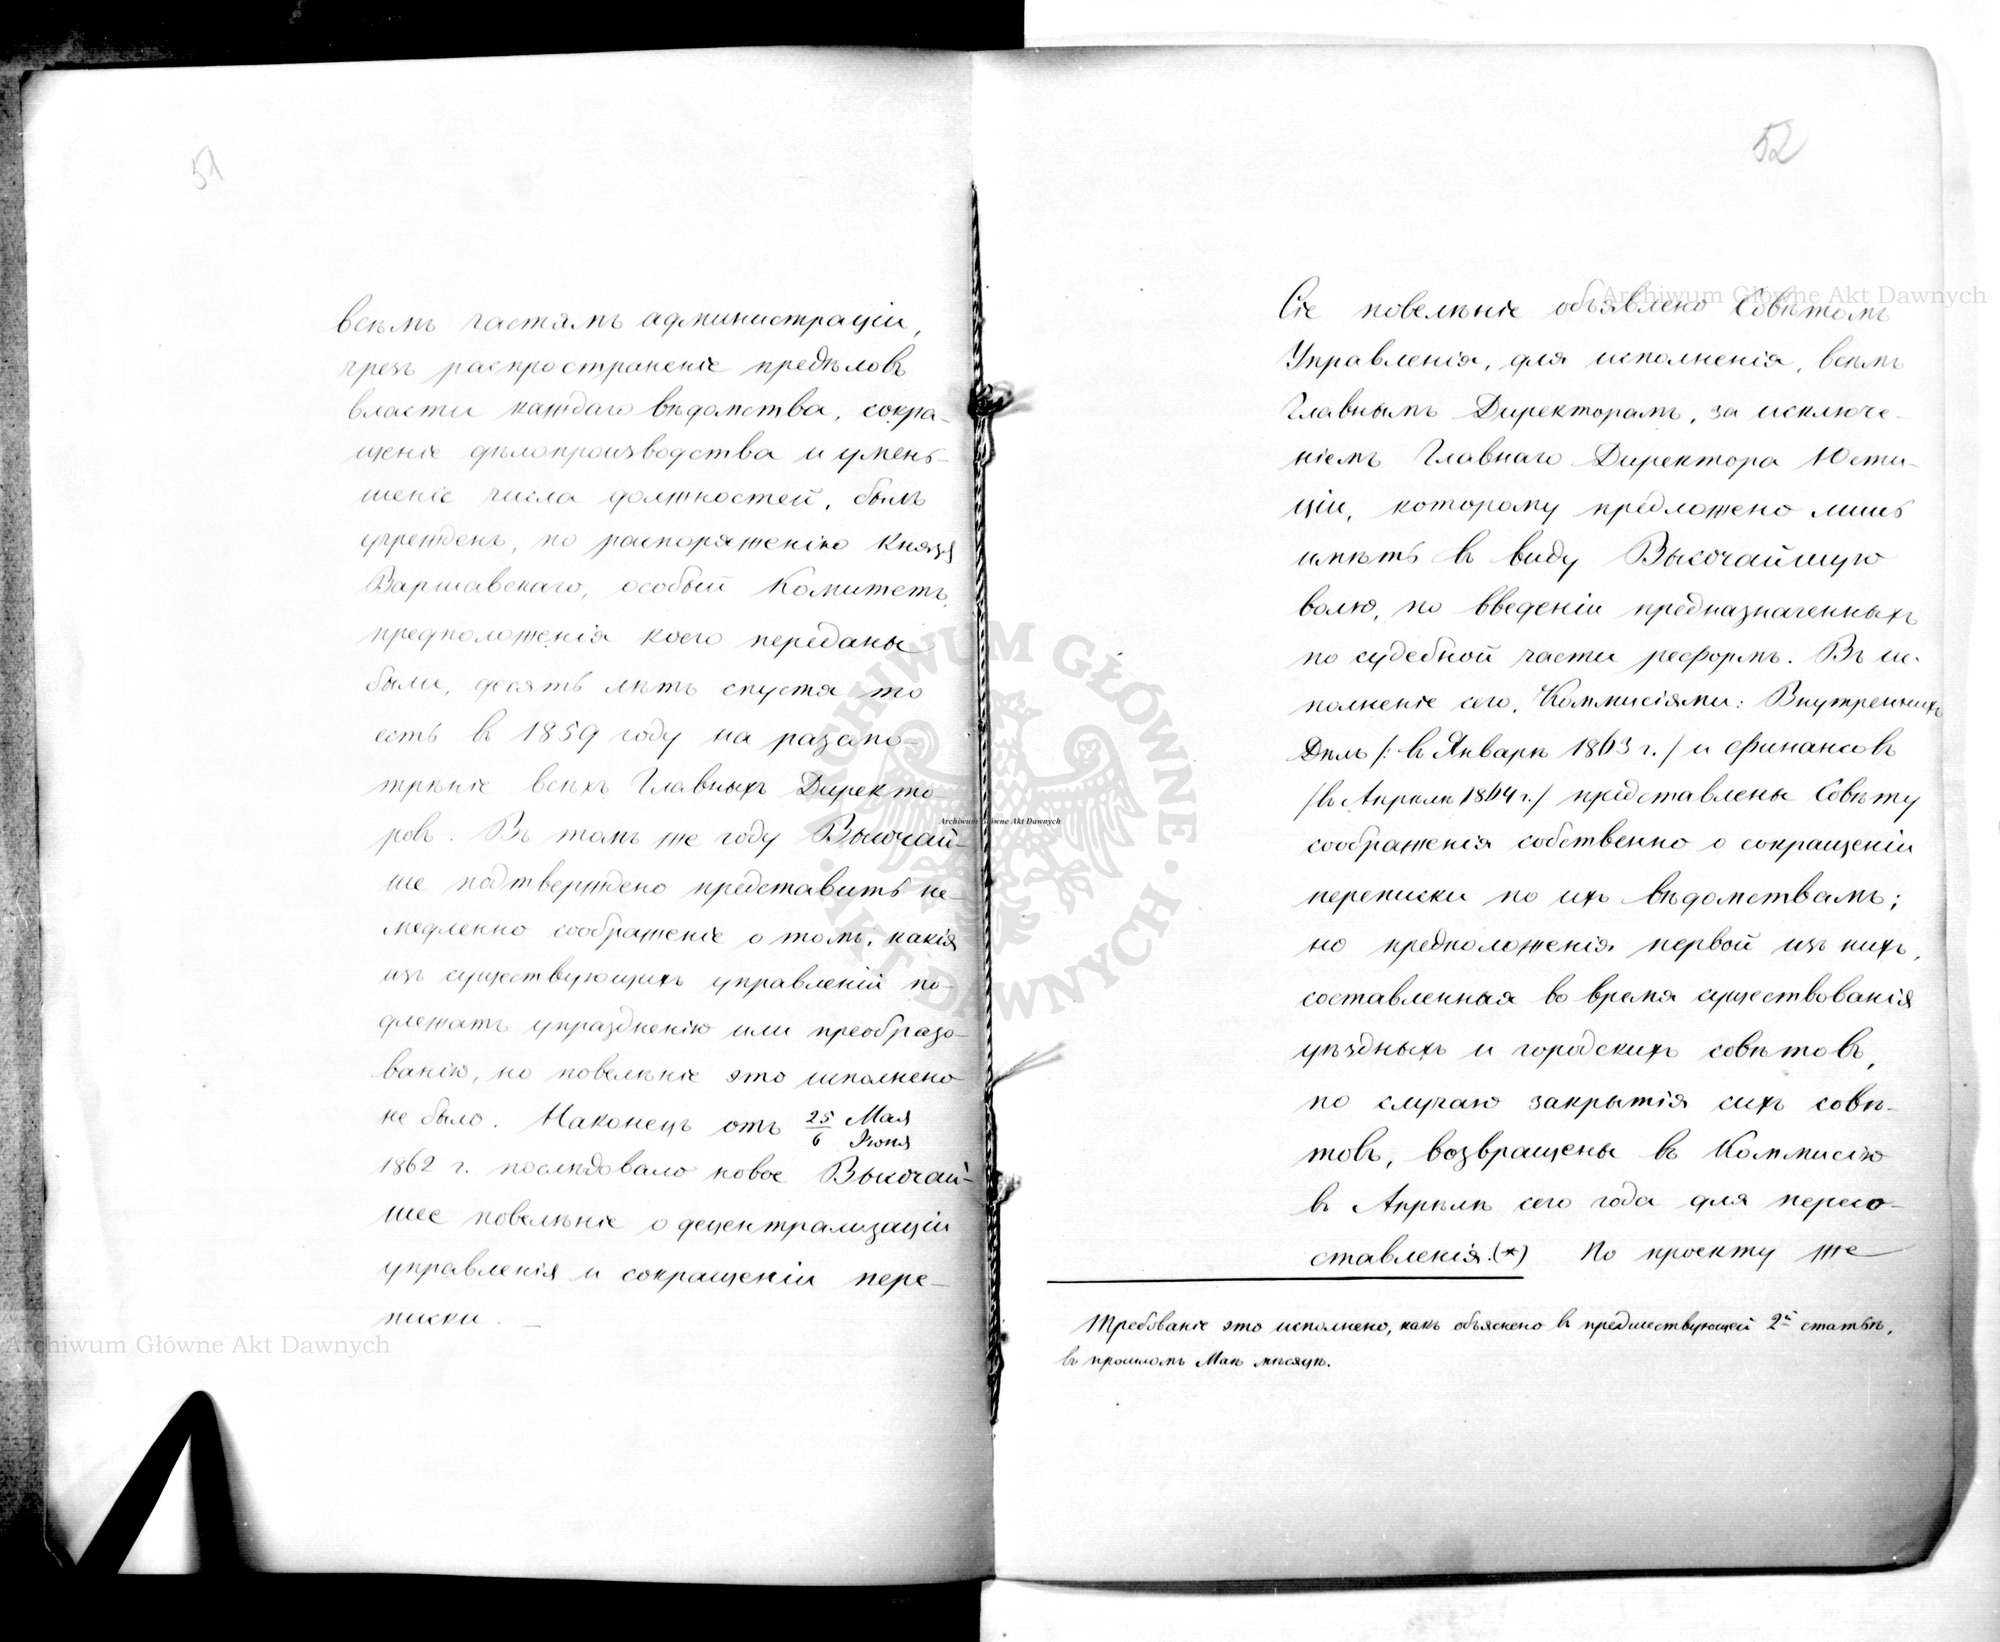 51
всѣмъ частямъ администраціи,
чрезъ распространеніе предѣловъ
власти каждаго вѣдомства, сокра-
щеніе дѣлопроизводства и умень-
шеніе числа должностей, былъ
учрежденъ, по распоряженію Князя
Варшавскаго, особый Комитетъ,
предположенія коего переданы
были, десять лѣтъ спустя то
есть въ 1859 году на разсмо-
трѣніе всѣхъ Главныхъ Директо-
ровъ. Въ томъ же году Высочай-
ше подтверждено представить не-
медленно соображеніе о томъ, какія
изъ существующихъ управленій по-
длежатъ упраздненію или преобразо-
ванію, но повелѣніе это исполнено
не было. Наконецъ отъ 25/6 Мая/Іюня
1862 г. послѣдовало новое Высочай-
шее повелѣніе о децентрализаціи
управленія и сокращеніи пере-
писки. —
52
Сіе повелѣніе объявлено Совѣтомъ
Управленія, для исполненія, всѣмъ
Главнымъ Директорамъ, за исключе-
ніемъ Главнаго Директора Юсти-
ціи, которому предложено лишь
имѣть въ виду Высочайшую
волю, по введеніи предназначенныхъ
по судебной части реформъ. Въ ис-
полненіе сего, Коммисіями: Внутреннихъ
Дѣлъ /: въ Январѣ 1863 г. / и Финансовъ
/ въ Апрѣлѣ 1864 г. / представлены Совѣту
соображенія собственно о сокращеніи
переписки по ихъ вѣдомствамъ;
но предположенія первой изъ нихъ,
составленная во время существованія
уѣздныхъ и городскихъ совѣтовъ,
по случаю закрытія сихъ совѣ-
товъ, возвращены въ Коммисію
въ Апрѣлѣ сего года для пересо-
ставленія. (*) По проекту же
Требованіе это исполнено, какъ объяснено въ предшествующей 2й статьѣ,
въ прошломъ Маѣ мѣсяцѣ.
Archiwum Główne Akt Dawnych
Archiwum Główne Akt Dawnych
Archiwum Główne Akt Dawnych
ARCHIWUM GŁÓWNE · AKT DAWNYCH ·